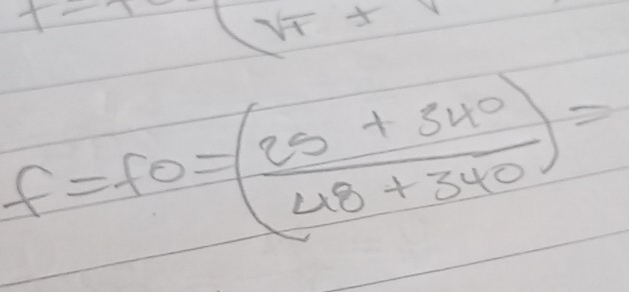 f = fo = (25 + 340 / 48 + 340) =